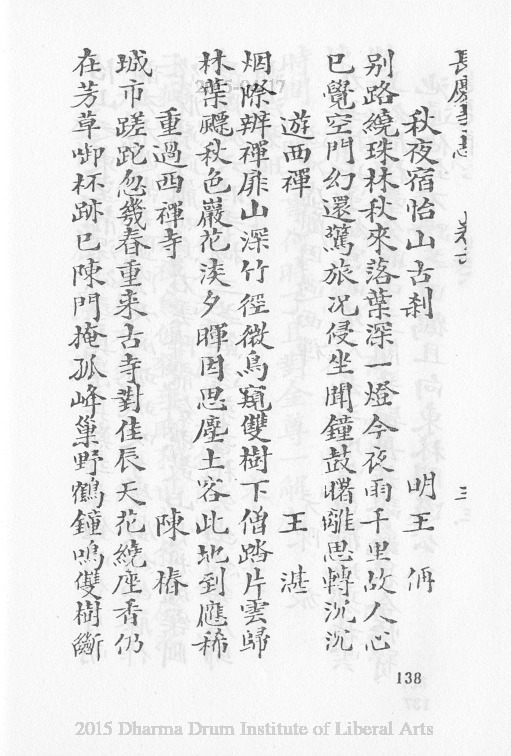 長慶寺志
三
秋夜宿怡山古刹 明王 偁
別路繞珠林秋來落葉深一燈今夜雨千里故人心
已覺空門幻還驚旅况侵坐聞鐘鼓曙離思轉沉沉
遊西禪 王 湛
烟際辨禪扉山深竹徑微鳥窺雙樹下僧踏片雲歸
林葉飃秋色巖花淡夕暉因思塵土客此地到應稀
重過西禪寺 陳 椿
城市蹉跎忽幾春重來古寺對佳辰天花繞座香仍
在芳草啣杯跡已陳門掩孤峰巢野鶴鐘鳴雙樹斷
138
2015 Dharma Drum Institute of Liberal Arts